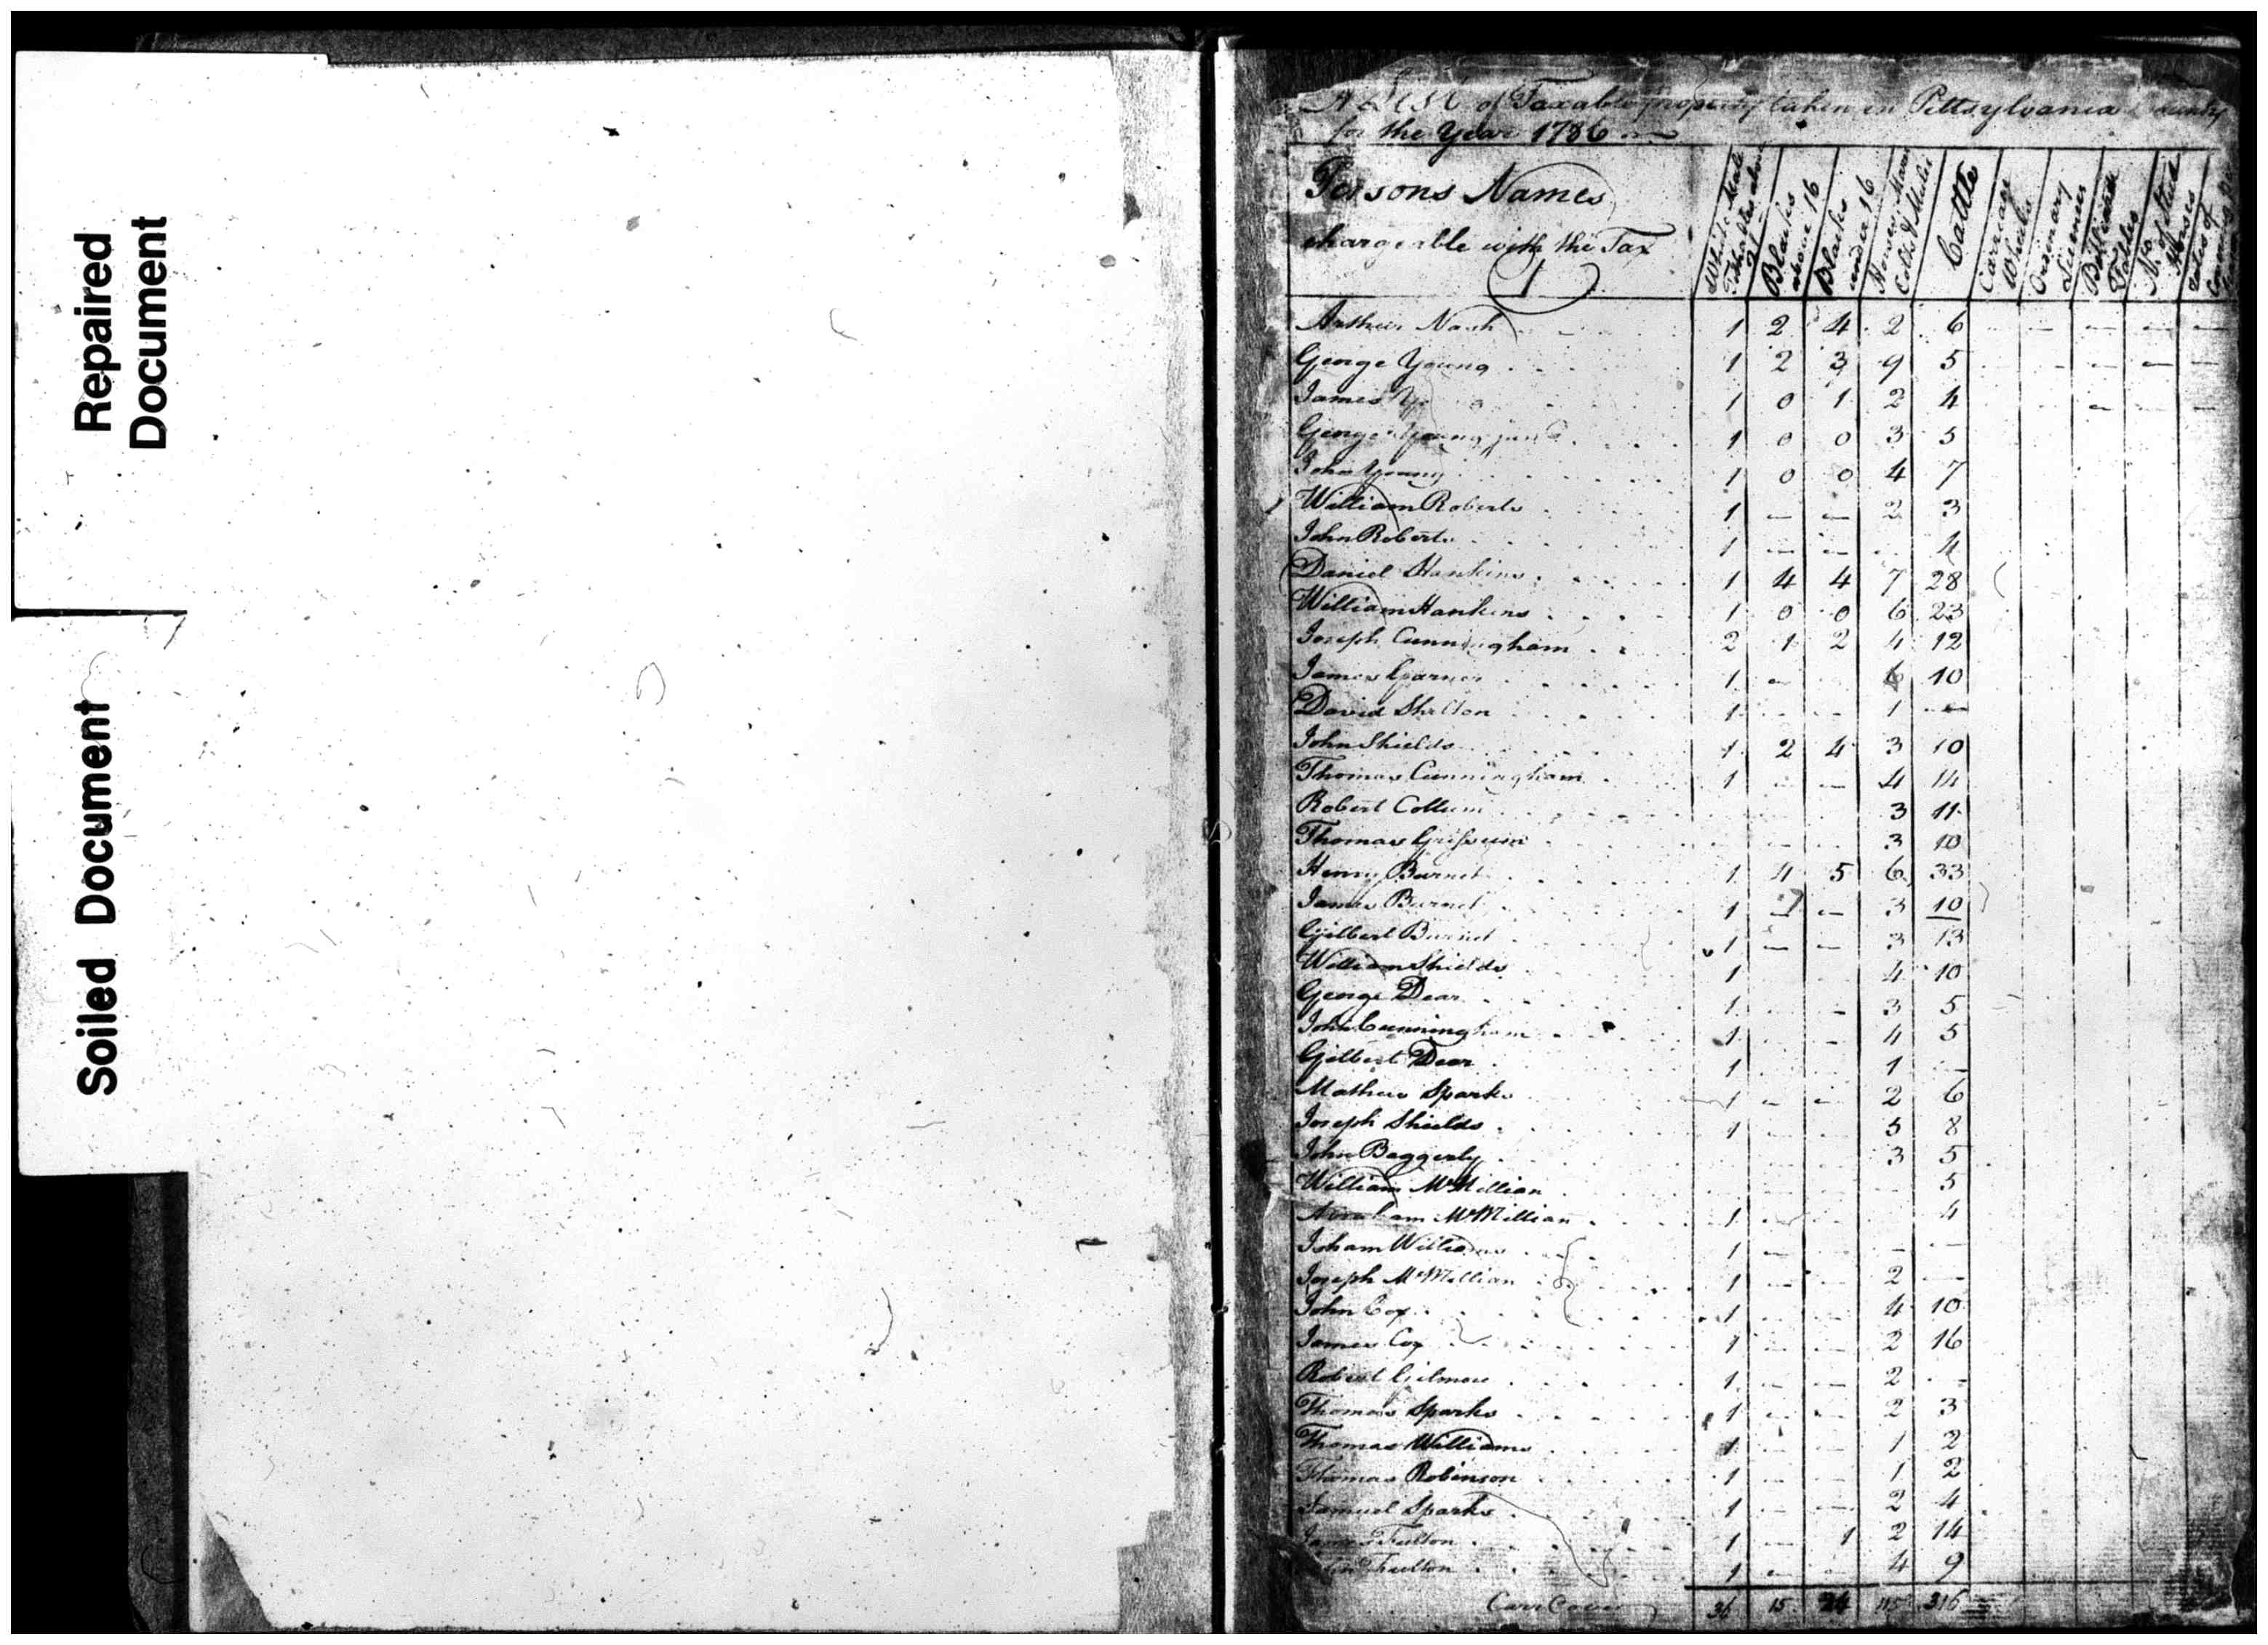 Repaired
Document
Soiled Document
A List of Taxable property taken in Pittsylvania County
for the Year 1786
Persons Names
chargeable with the Tax
White Male Tithables above 21
Blacks above 16
Blacks under 16
Horses Mares Colts & Mules
Cattle
Carriage Wheels
Ordinary Licences
Billiard Tables
No. of Stud Horses
Rates of
Arthur Nash 1 2 4 2 6 — — — —
George Young 1 2 3 9 5 — — —
James 1 0 1 2 4 — —
George Young junr 1 0 0 3 5
John Young 1 0 0 4 7
William Roberts 1 — — 2 3
John Roberts 1 — — 4
Daniel Hankins 1 4 4 7 28
William Hankins 1 0 0 6 23
Joseph Cunningham 2 1 2 4 12
James Garner 1 — 6 10
David Shelton 1 — — 1 —
John Shields 1 2 4 3 10
Thomas Cunningham 1 — — 4 14
Robert Collum 3 11
Thomas Grissum 3 10
Henry Burnet 1 4 5 6 33
James Burnet 1 — — 3 10
Gilbert Burnet 1 — — 3 13
William Shields 1 4 10
George Dear 1 — 3 5
John Cunningham 1 — 4 5
Gilbert Dear 1 1 —
Mathew Sparks 1 — — 2 6
Joseph Shields 1 — — 5 8
John Baggerly 3 5
William McMillian 5
Abraham McMillian 1 — 4
Isham Williams 1 — — —
Joseph McMillian 1 — — 2 —
John Cox 1 — — 4 10
James Cox 1 — — 2 16
Robert Gilmore 1 — — 2 —
Thomas Sparks 1 — — 2 3
Thomas Williams 1 — — 1 2
Thomas Robinson 1 — — 1 2
Samuel Sparks 1 — — 2 4
James Fulton 1 — 1 2 14
1 — — 4 9
Carr Over 36 15 24 115 316